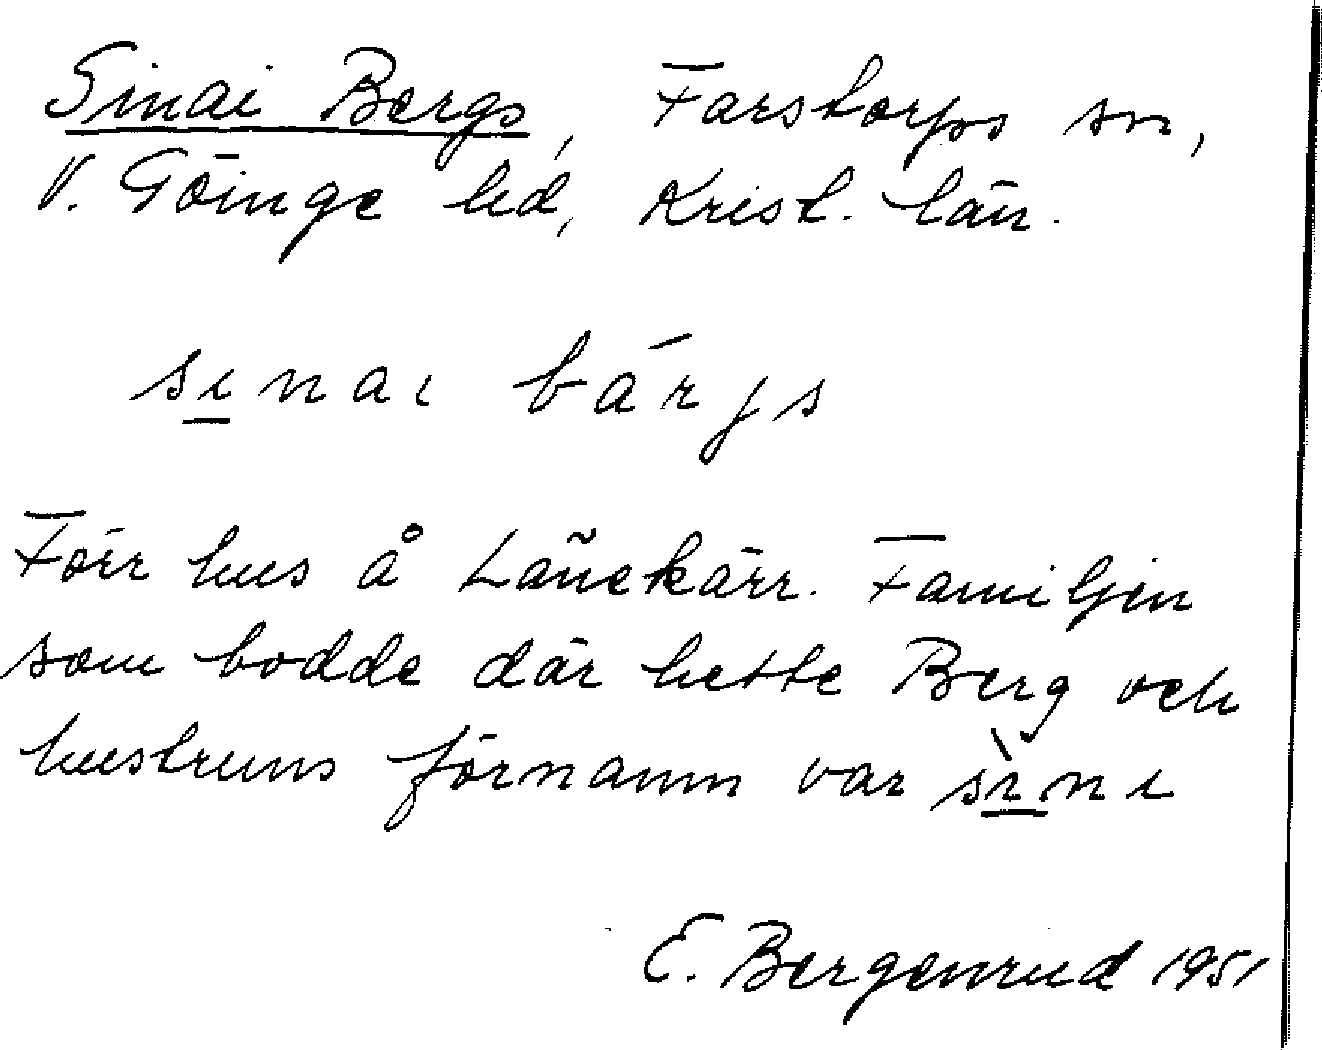 Sinai Bergs, Farstorps sn,
V. Göinge hd, Krist. län.
sınaı bárjs
Förr hus å Lånekärr. Familjen
som bodde där hette Berg och
hustruns förnamn var sı̀nı
E. Bergenrud 1951